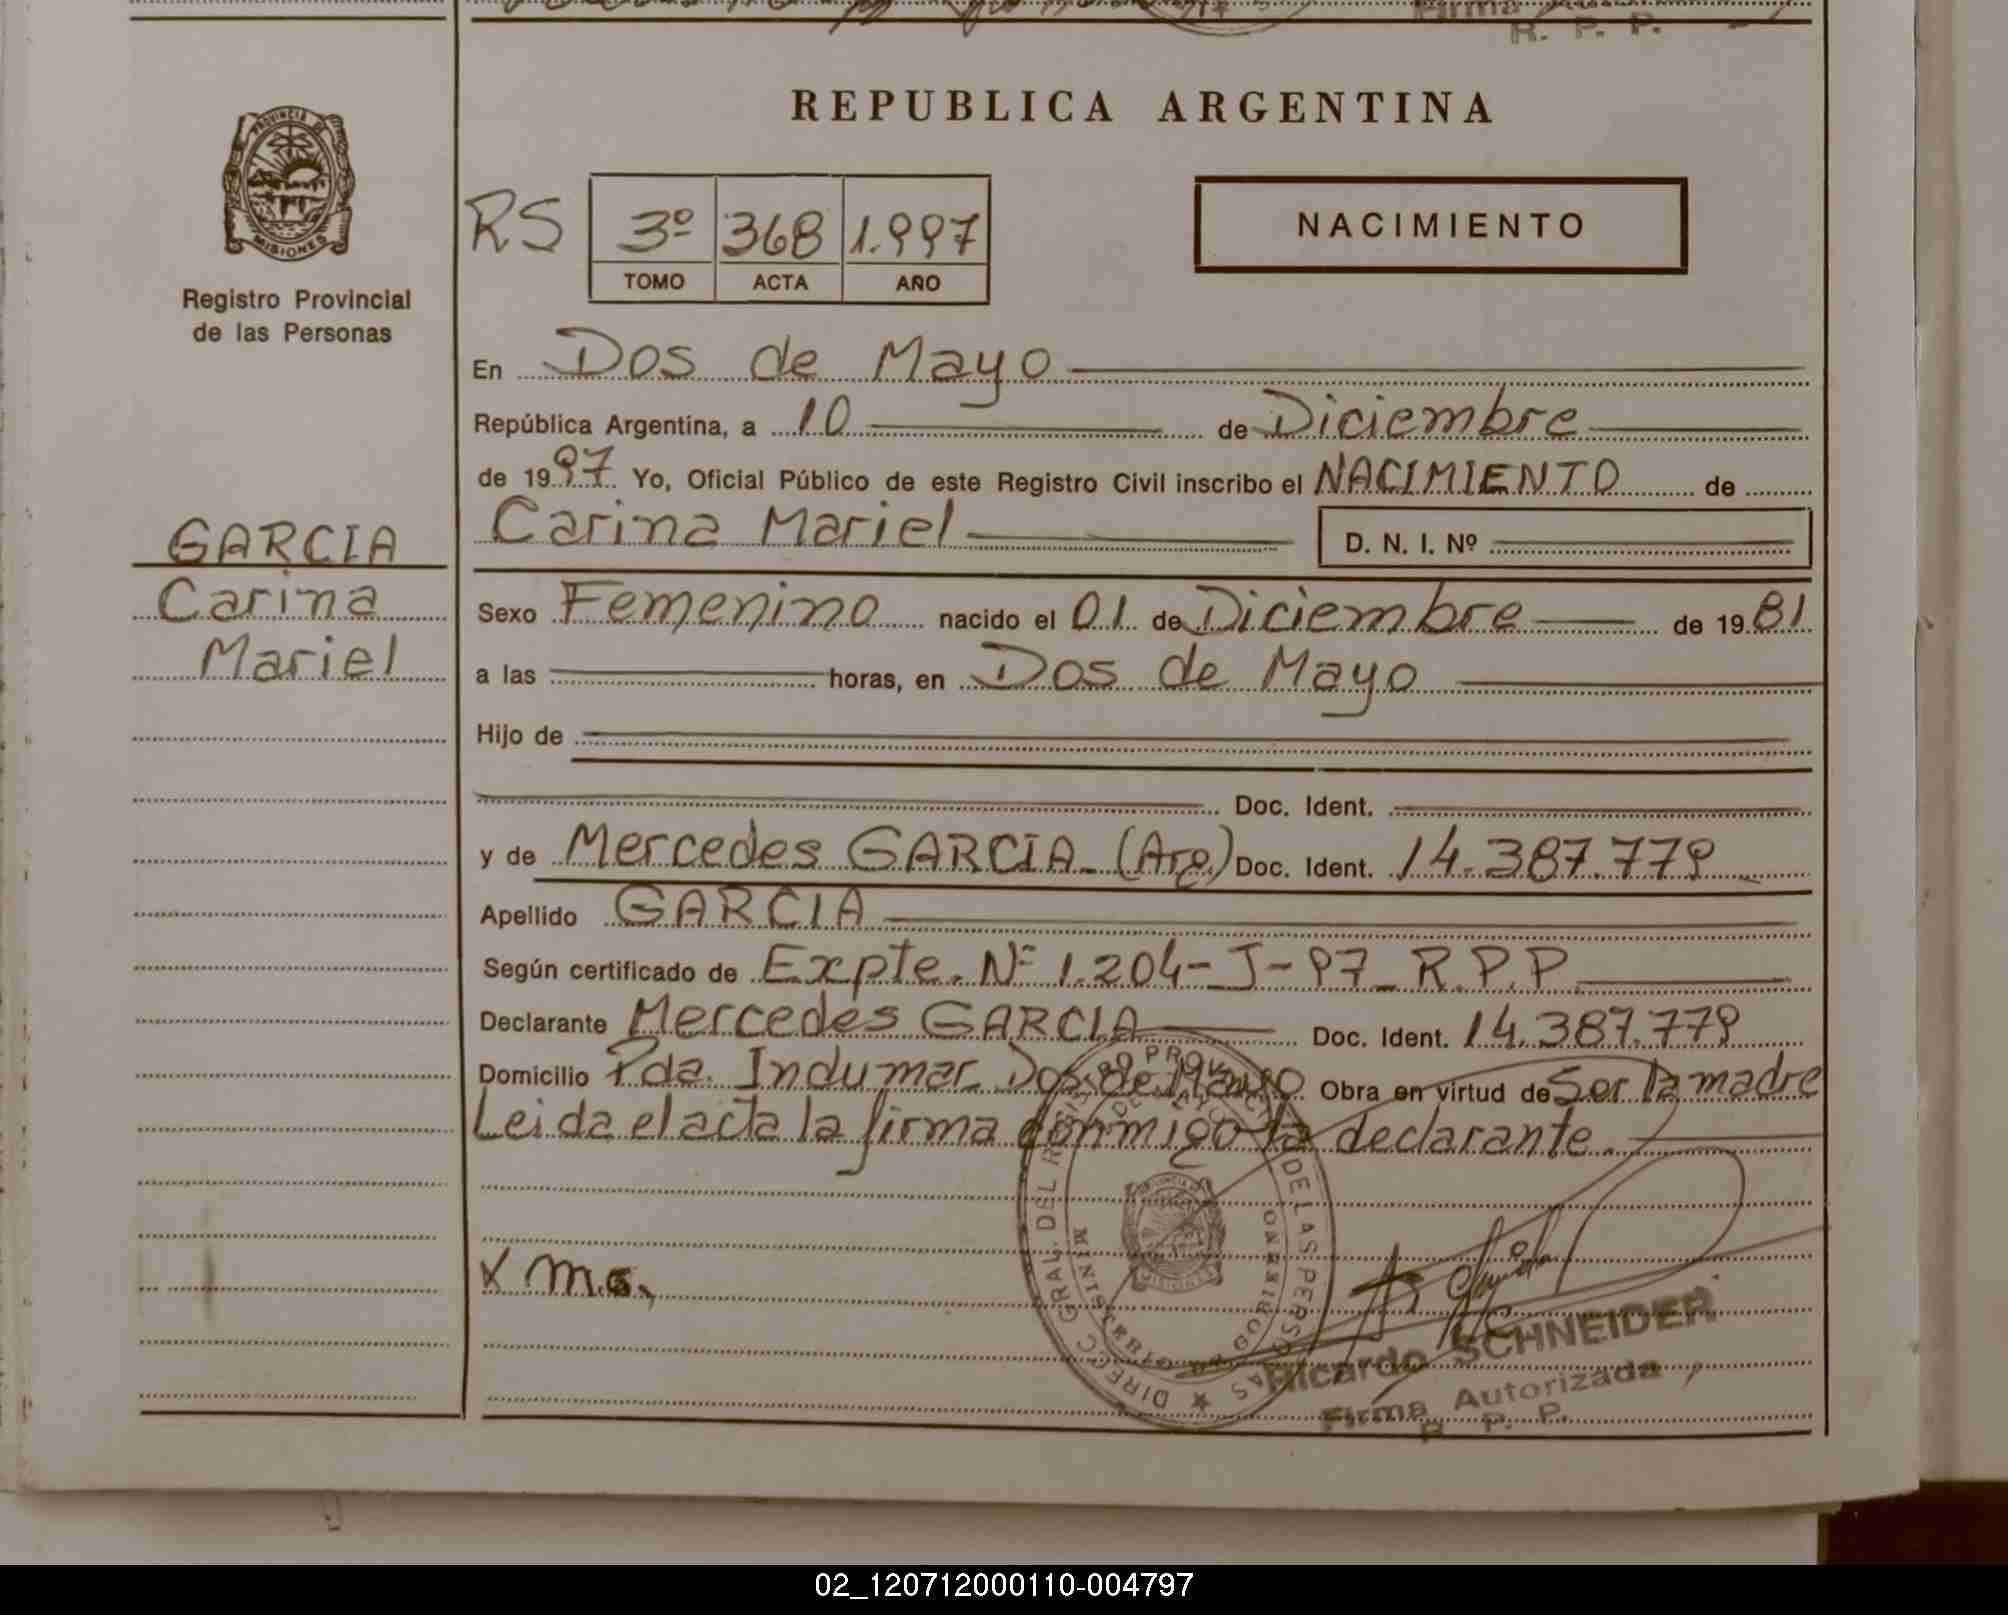 Firma
R. P. P.
PROVINCIA DE
MISIONES
Registro Provincial
de las Personas
GARCIA
Carina
Mariel
REPUBLICA ARGENTINA
RS 3º 368 1.997
TOMO ACTA AÑO
NACIMIENTO
En Dos de Mayo
República Argentina, a 10 de Diciembre
de 1997 Yo, Oficial Público de este Registro Civil inscribo el NACIMIENTO de
Carina Mariel D. N. I. Nº
Sexo Femenino nacido el 01 de Diciembre de 1981
a las horas, en Dos de Mayo
Hijo de
Doc. Ident.
y de Mercedes GARCIA (Arg) Doc. Ident. 14.387.779
Apellido GARCIA
Según certificado de Expte. Nº 1.204-J-97 R.P.P.
Declarante Mercedes GARCIA Doc. Ident. 14.387.779
Domicilio Pda. Indumar Dos de Mayo Obra en virtud de Ser la madre
Leida el acta la firma conmigo la declarante.
DIRECC. GRAL. DEL REGISTRO PROVINCIAL DE LAS PERSONAS
MINISTERIO DE GOBIERNO
MISIONES
X M.G.
Ricardo SCHNEIDER
Firma Autorizada
R. P. P.
02_120712000110-004797